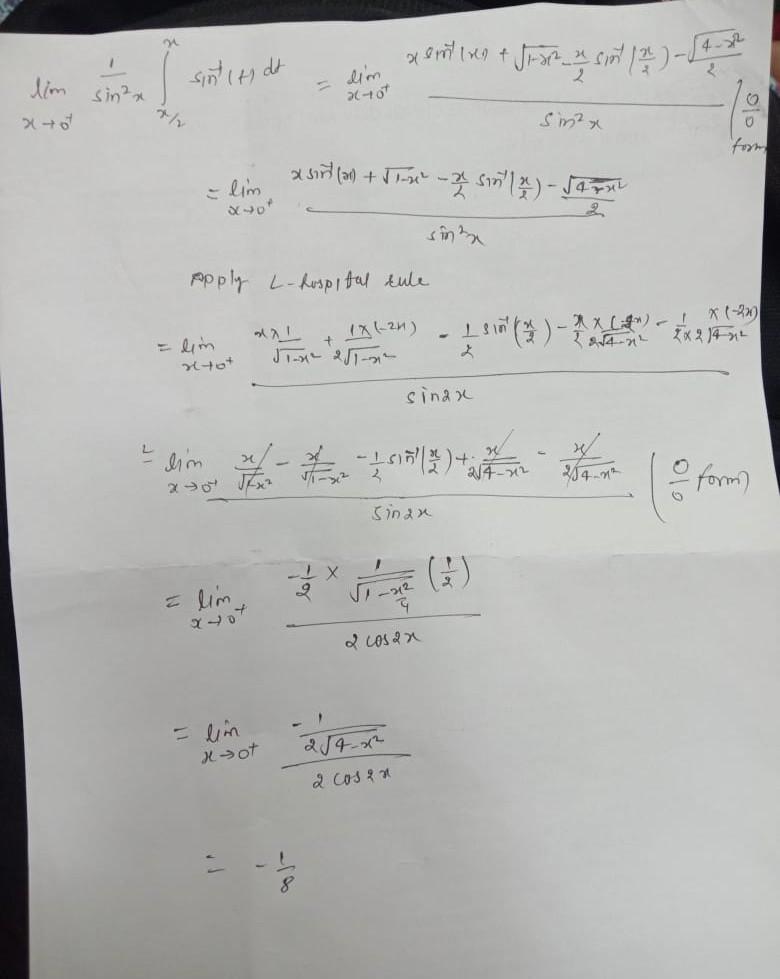 lim x→0⁺ 1/sin²x ∫_{x/2}^{x} sin⁻¹(t) dt = lim x→0⁺ (x sin⁻¹(x) + √(1-x²) - x/2 sin⁻¹(x/2) - √(4-x²)/2) / sin²x (0/0 form
= lim x→0⁺ (x sin⁻¹(x) + √(1-x²) - x/2 sin⁻¹(x/2) - √(4-x²)/2) / sin²x
Apply L-hospital rule
= lim x→0⁺ (x×1/√(1-x²) + 1×(-2x)/2√(1-x²) - 1/2 sin⁻¹(x/2) - x/2 × (-2x)/2√(4-x²) - 1/2 × (-2x)/2√(4-x²)) / sin2x
= lim x→0⁺ (x/√(1-x²) - x/√(1-x²) - 1/2 sin⁻¹(x/2) + x/2√(4-x²) - x/2√(4-x²)) / sin2x (0/0 form)
= lim x→0⁺ (-1/2 × 1/√(1-x²/4) (1/2)) / 2cos2x
= lim x→0⁺ (-1/2√(4-x²)) / 2cos2x
= -1/8